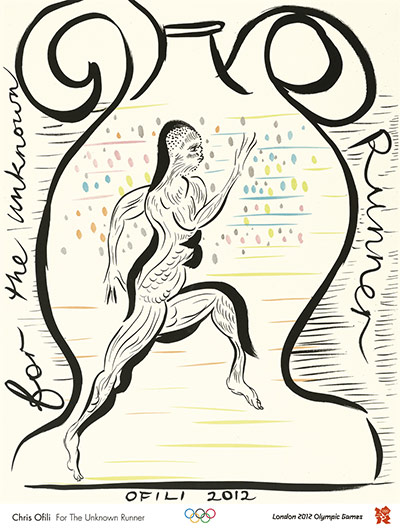 for the unknown
Runner
OFILI 2012
Chris Ofili For The Unknown Runner
London 2012 Olympic Games